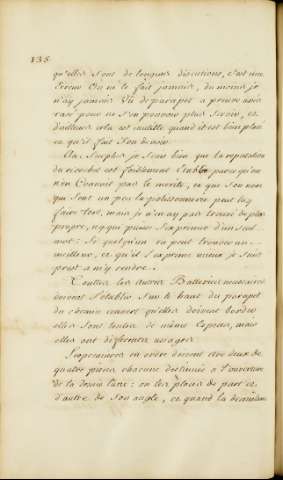 135
qu'elles sont de longues discutions, c'est une
Erreur On ne le fait jamais, du moins je
n'ay jamais Vû de parapet a preuve assés
rasé pour ne s'en pouvoir plus servir, et
d'ailleurs cela est inutille quand il est bien plein
et qu'il fait son devoir
Au Surplus je Sçais bien que la reputation
du ricochet est foiblement Etablie parce qu'on
n'en Connoit pas le merite, et que Son nom
qui Sent un peu la polissonnerie peut luy
faire tort, mais je n'en ay pas trouvé de plus
propre, ny qui puisse S'exprimer d'un seul
mot: Si quelqu'un en peut trouver un
meilleur, et qu'il s'exprime mieux je suis
prest a m'y rendre.
Touttes les autres Batteries
doivent S'etablir Sur le haut du parapet
du chemin couvert qu'elles doivent border
elles Sont toutes de même Espece, mais
elles ont differents usages
Les premieres en ordre doivent etre deux de
quatre pieces chacune destinées a l'ouverture
de la demie lune: on les place de part et
d'autre de Son angle, et quand la